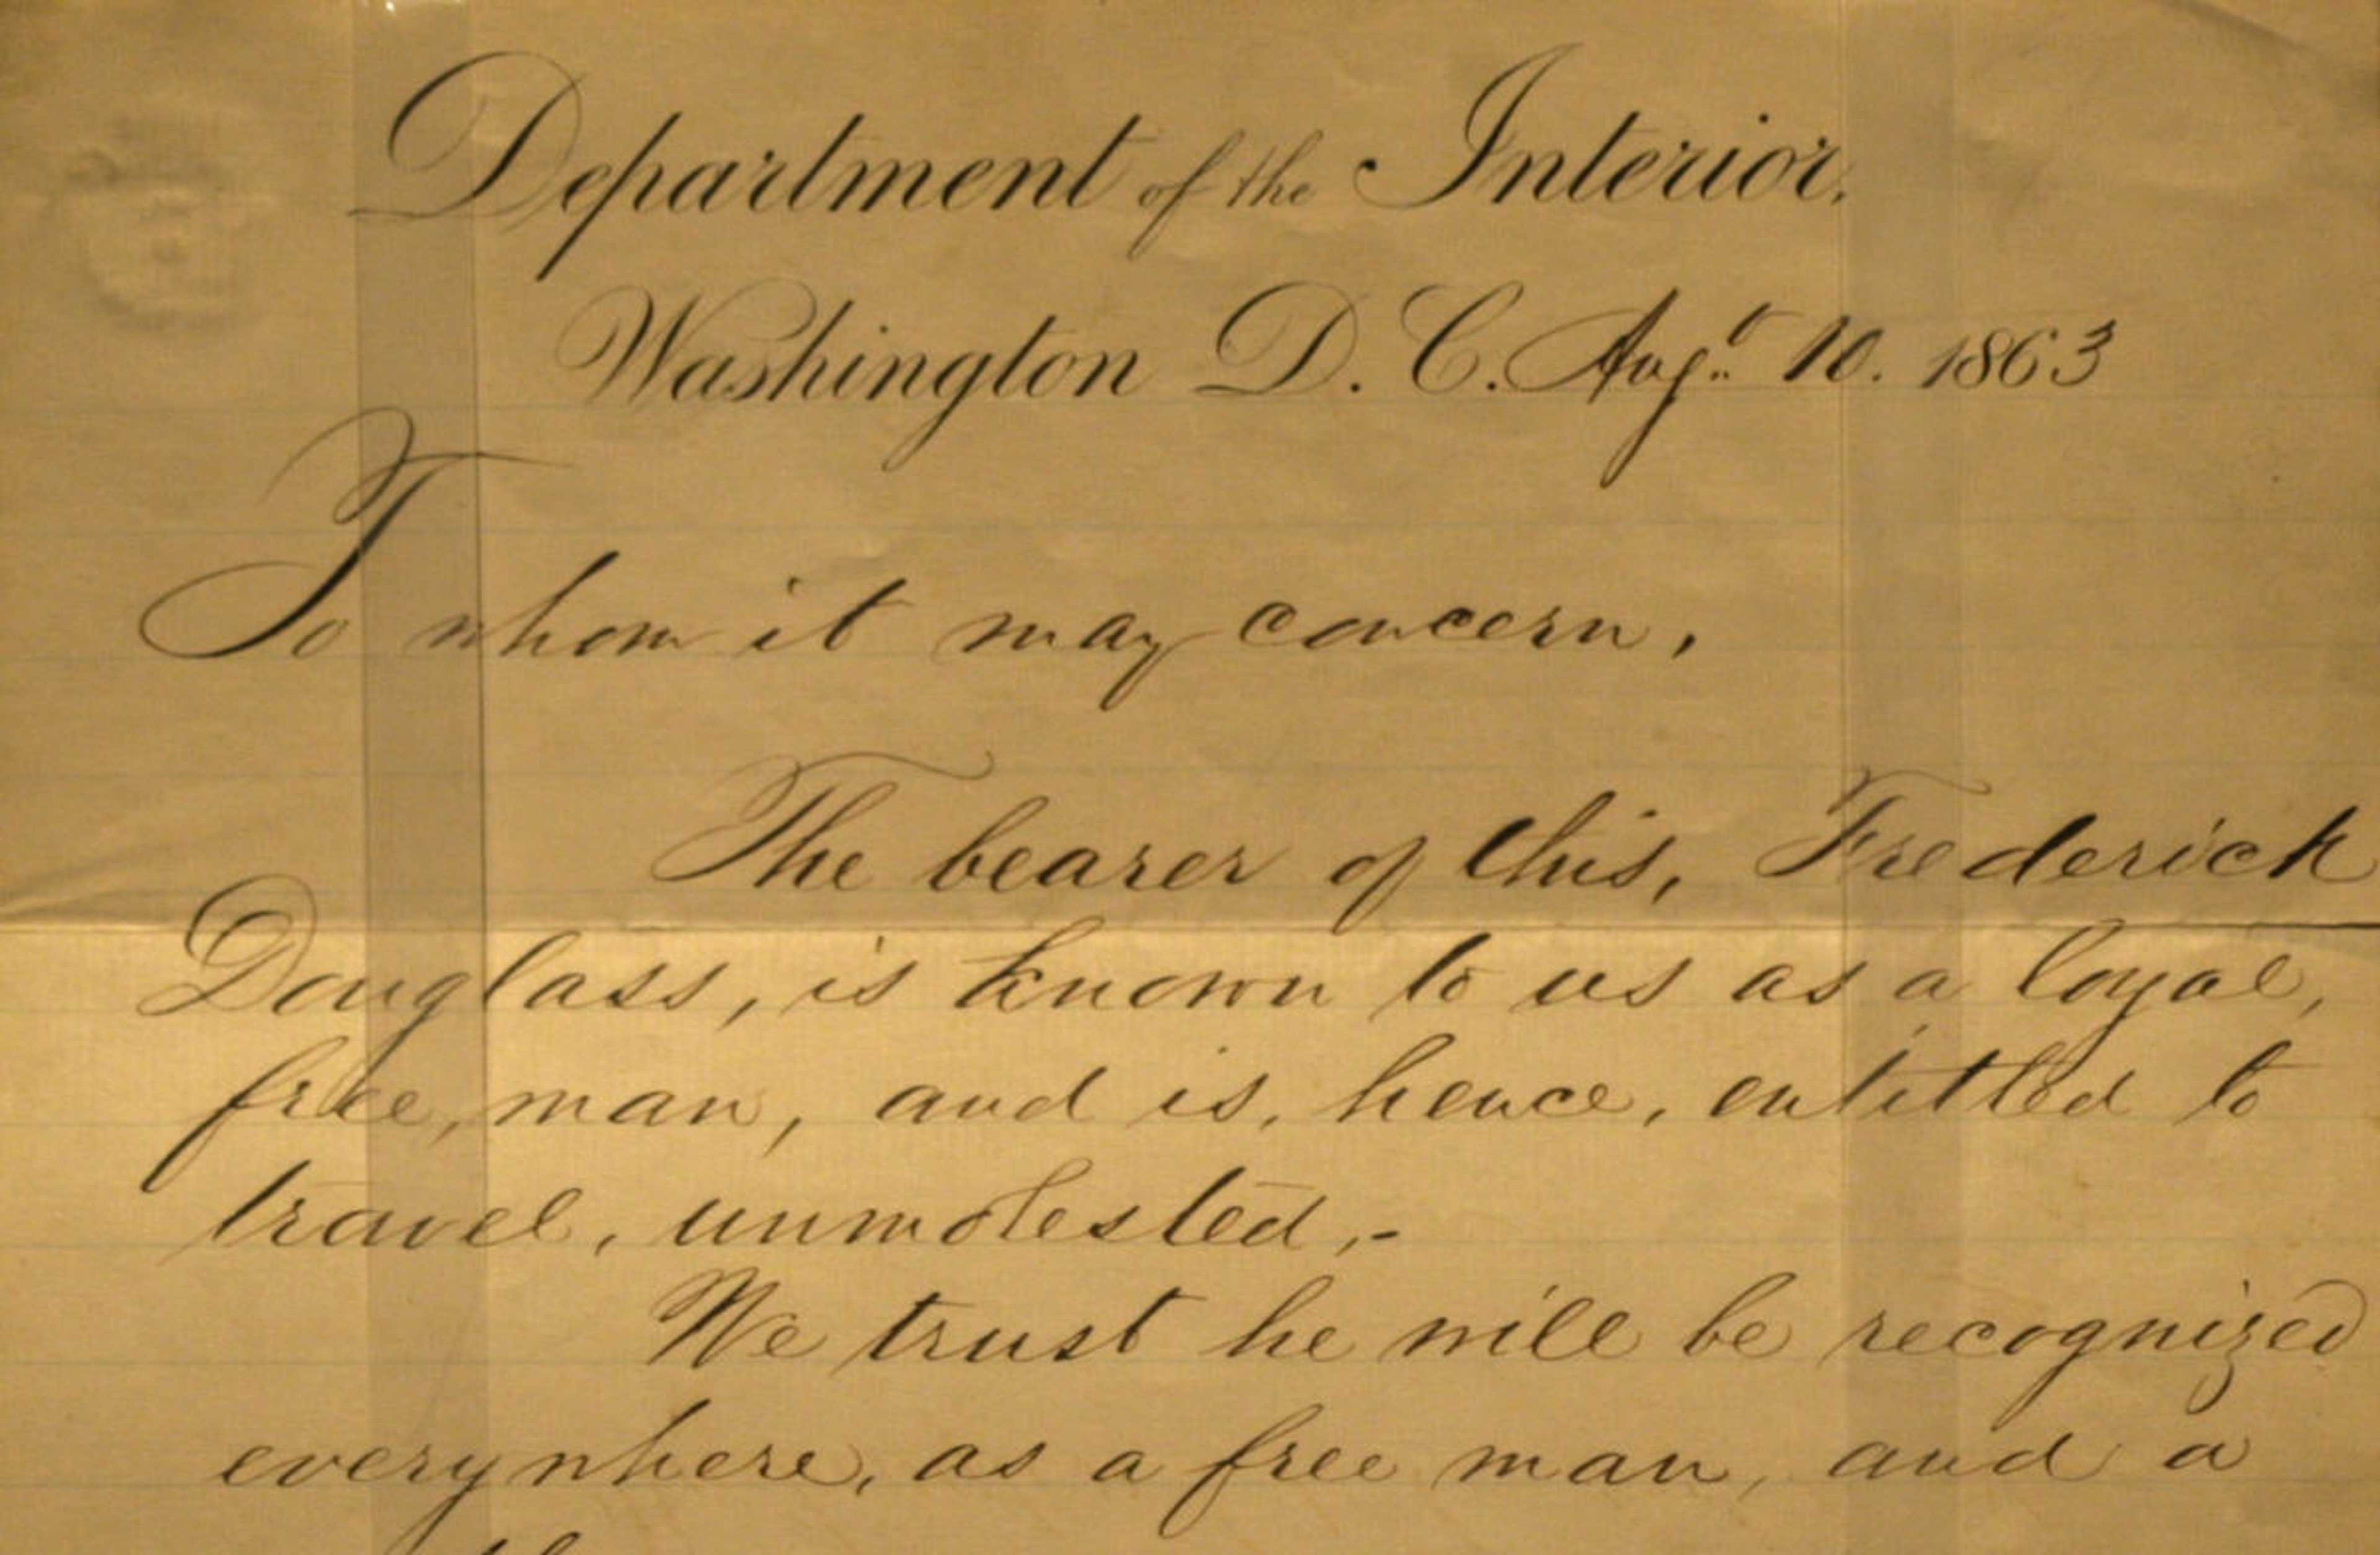 Department of the Interior.
Washington D. C. Augt. 10. 1863
To whom it may concern,
The bearer of this, Frederick
Douglass, is known to us as a loyal,
free, man, and is, hence, entitled to
travel, unmolested,-
We trust he will be recognized
everywhere, as a free man, and a